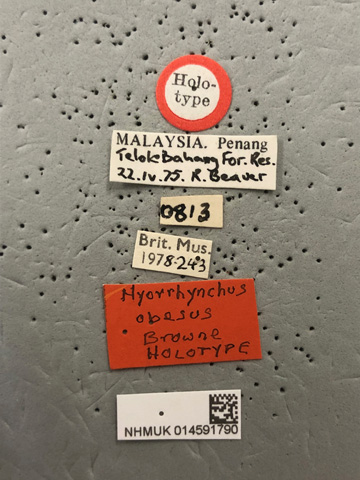 Holo-
type
MALAYSIA. Penang
Telok Bahang For. Res.
22.iv.75. R. Beaver
0813
Brit. Mus.
1978-243
Hyorrhynchus
obesus
Browne
HOLOTYPE
NHMUK 014591790